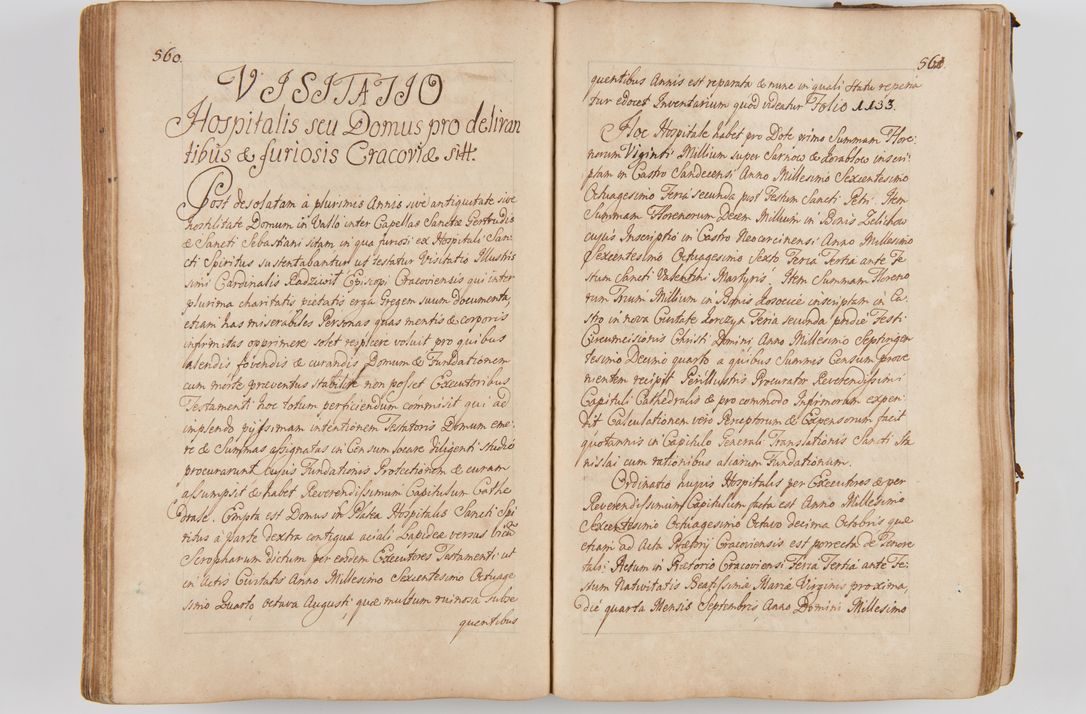 560.
VISITATIO
Hospitalis seu Domus pro deliran
tibus & furiosis Cracoviæ sitt:
Post desolatam à plurimis Annis sive antiquitate sive
hostilitate Domum in Vallo inter Capellas Sanctæ Gertrudis
& Sancti Sebastiani sitam in qua furiosi ex Hospitali San
cti Spiritus sustentabantur ut testatur Visitatio Illustris
simi Cardinalis Radziwił Episcopi Cracoviensis qui inter
plurima charitatis pietatis erga Gregem suum documenta,
etiam has miserabiles Personas quas mentis & corporis
infirmitas opprimere solet respicere voluit pro quibus
alendis fovendis & curandis Domum & Fundationem
cum morte præventus stabilire non posset Executoribus
Testamenti hoc totum perficiendum commisit qui ad
implendo piissimam intentionem Testatoris Domum eme
re & Summas assignatas in Censum locare diligenti studio
procurarunt cujus Fundationis Protectionem & curam
assumpsit & habet Reverendissimum Capitulum Cathe
drale. Empta est Domus in Platea Hospitalis Sancti Spi
ritus a parte dextra contigua aciali Lapideæ versus
Scropharum dictum per eosdem Executores Testamenti ut
in Actis Civitatis Anno Millesimo Sexcentesimo Octuage
simo Quarto, octava Augusti, quæ multum ruinosa subse
quentibus
561.
quentibus Annis est reparata & nunc in quali statu reperia
tur edocet Inventarium quod videatur Folio 1133.
Hoc Hospitale habet pro Dote primo Summam Flore
norum Viginti Millium super Sarnow & inscri
ptam in Castro Sandecensi Anno Millesimo Sexcentesimo
Octuagesimo Feria secunda post Festum Sancti Petri. Item
Summam Florenorum Decem Millium in Bonis Zelichow
cujus Inscriptio in Castro Neocorcinensi Anno Millesimo
Sexcentesimo Octuagesimo Sexto Feria Tertia ante Fe
stum Sancti Valentini Martyris. Item Summam Floreno
rum Trium Millium in Bonis inscriptam in Ca
stro in nova Civitate Korczyn Feria secunda pridie Festi
Circumcisionis Christi Domini Anno Millesimo Septingen
tesimo Decimo quarto a quibus Summis Censum prove
nientem recipit Perillustris Procurator Reverendissimi
Capituli Cathedralis & pro commodo Infirmorum expen
dit Calculationem vero Perceptorum & Expensorum facit
quotannis in Capitulo Generali Translationis Sancti Sta
nislai cum rationibus aliarum Fundationum.
Ordinatio hujus Hospitalis per Executores & per
Reverendissimum Capitulum facta est Anno Millesimo
Sexcentesimo Octuagesimo Octavo decima Octobris quæ
etiam ad Acta Prætorij Cracoviensis est porrecta de Tenore
tali: Actum in Prætorio Cracoviensi Feria Tertia ante Fe:
stum Nativitatis Beatissimæ Mariæ Virginis proxima,
die quarta Mensis Septembris, Anno Domini Millesimo